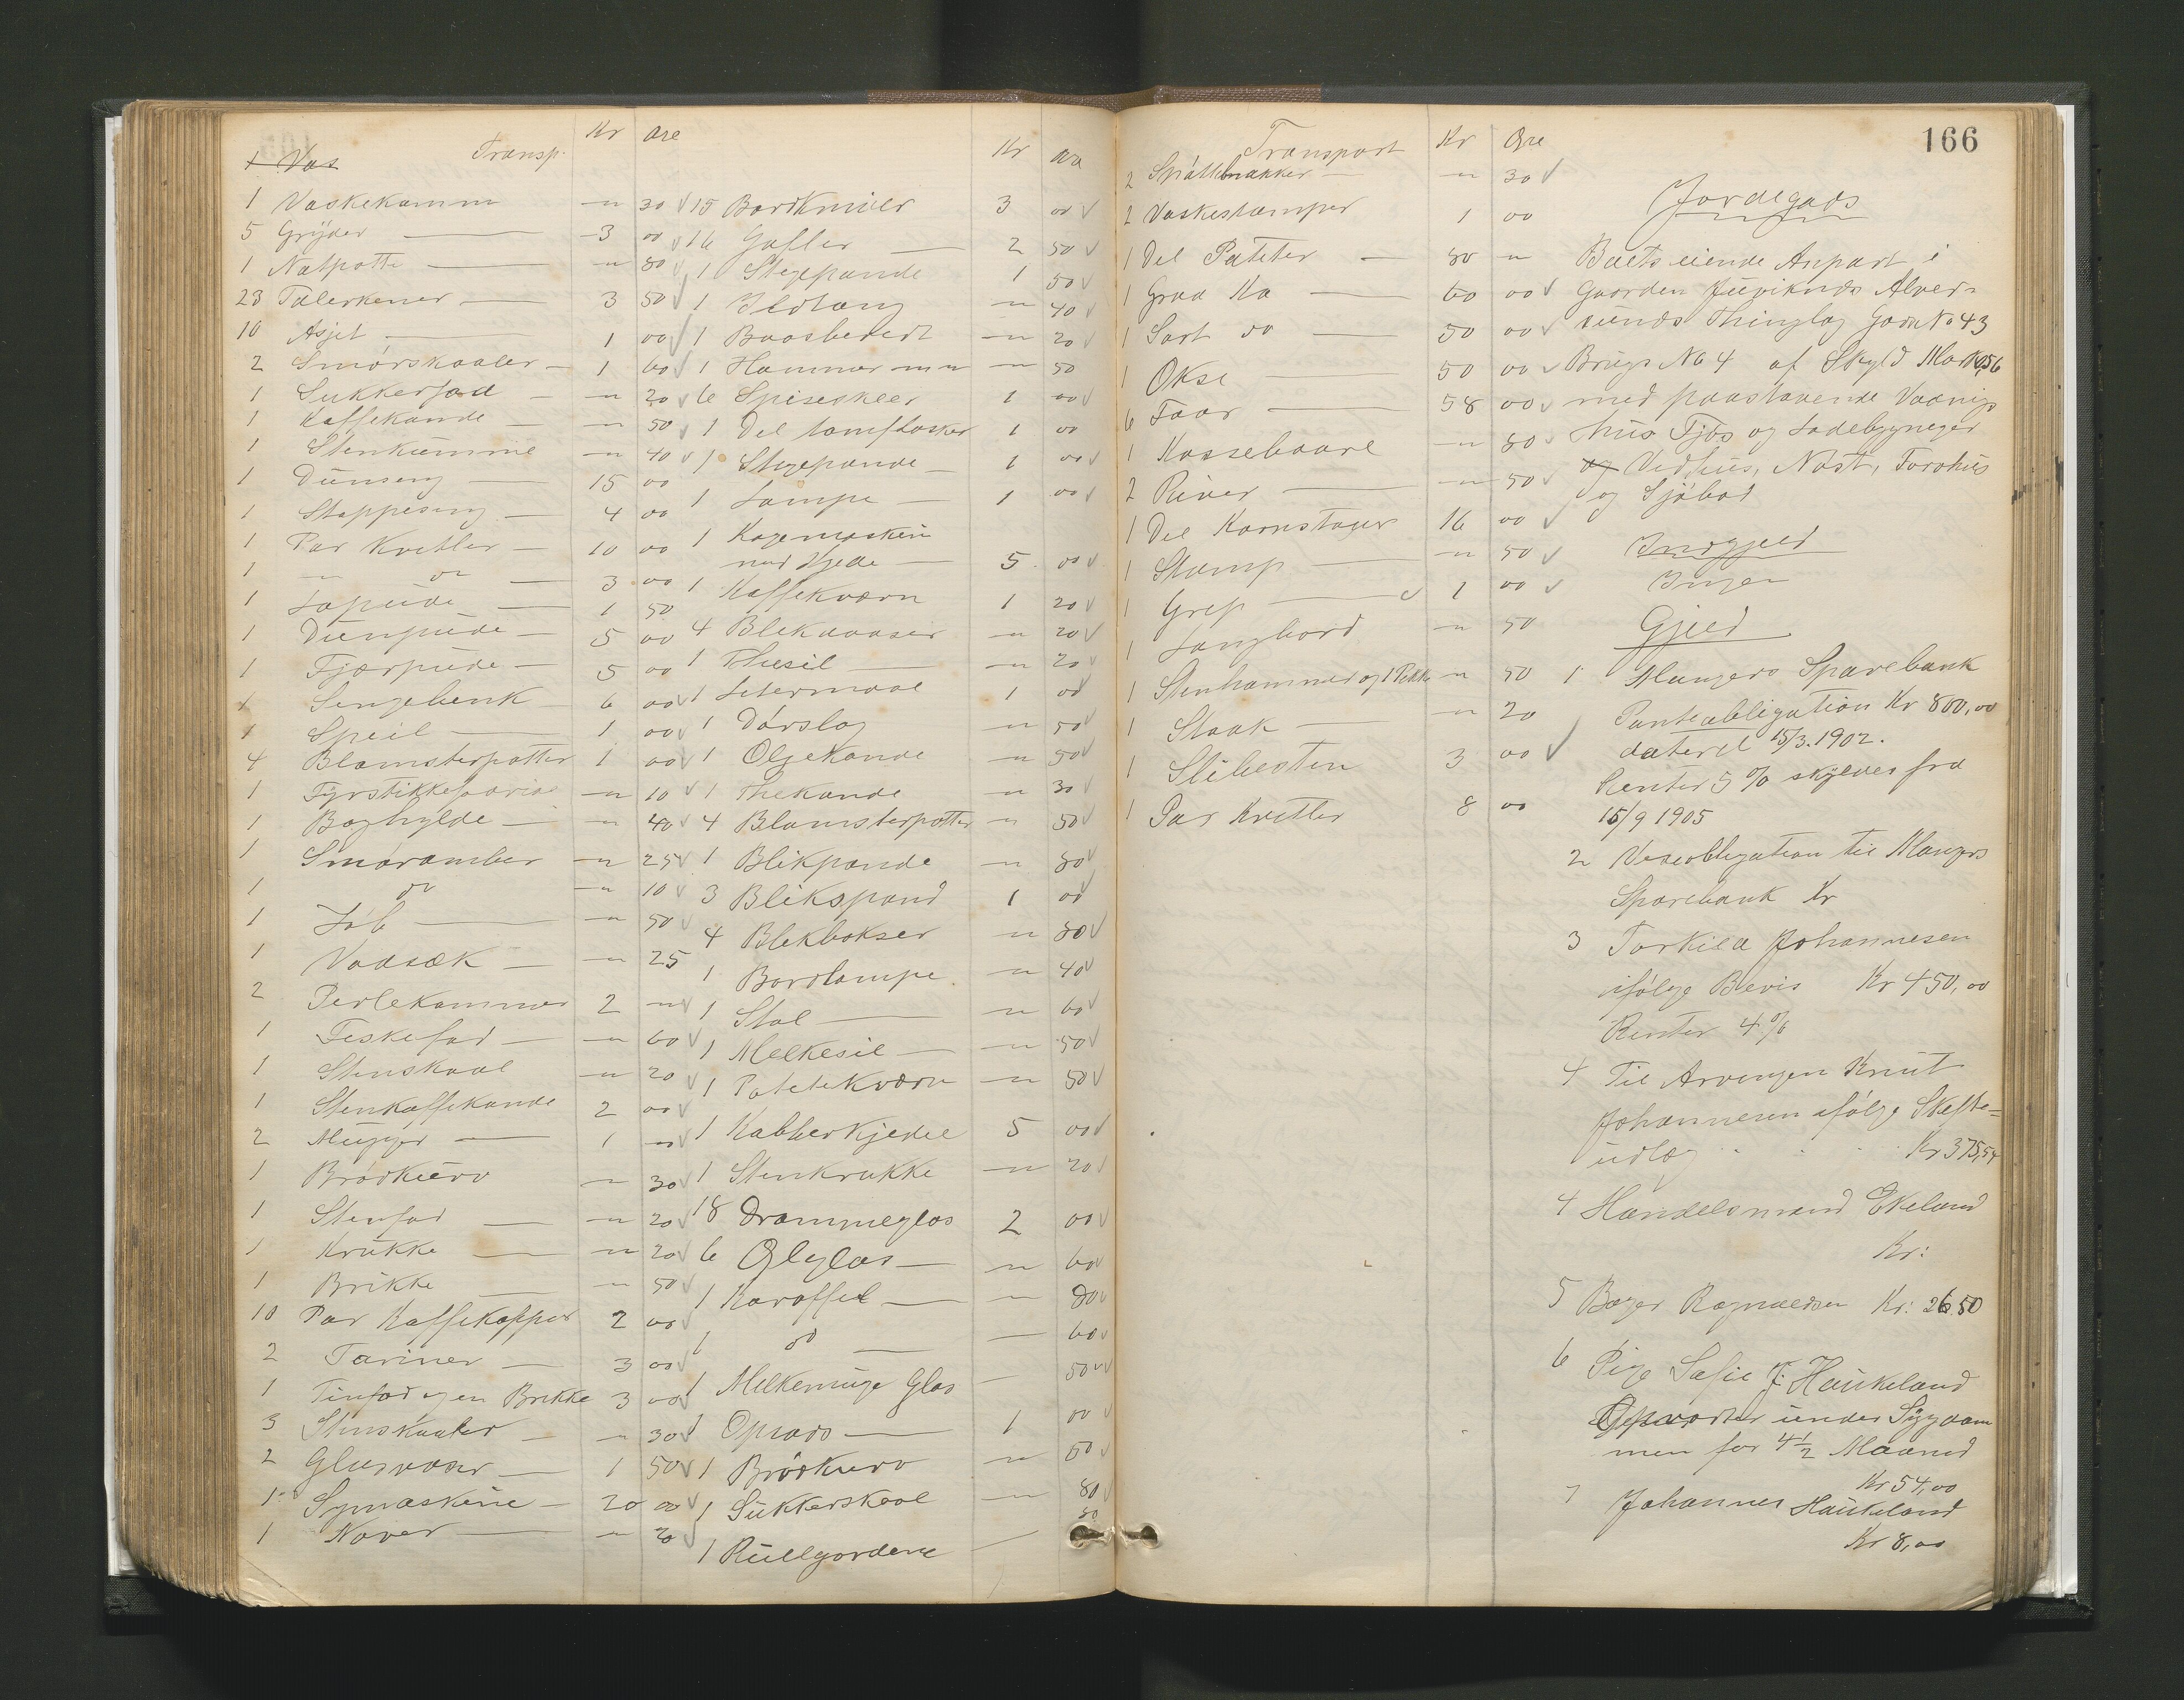 Transp. Kr Øre
1 Vas
1 Vaskekamm " 30
5 Gryder 3 00
1 Natpotte " 80
23 Talerkener 3 50
10 Asjet 1 00
2 Smörskaaler 1 60
1 Sukkerfad " 20
1 Kaffekande " 50
1 Stenkumme " 40
1 Dunseng 15 00
1 Stoppeseng 4 00
1 Par Kvitler 10 00
1 " do 3 00
1 Lapude 1 50
1 Dunpude 5 00
1 Fjærpude 5 00
1 Sengebenk 6 00
1 Speil 1 00
4 Blomsterpotter 1 00
1 " 10
1 Boghylde " 40
1 Smöramber " 25
1 do " 10
1 Löb " 50
1 Vadsæk " 25
2 Perlekammer 2 "
1 Feskefad " 60
1 Stenskaal " 20
1 Stenkaffekande 2 00
2 Mugger 1 "
1 Brödkurv " 30
1 Stenfad " 20
1 Krukke " 20
1 Brikke " 50
10 Par Kaffekopper 2 00
2 Tariner 3 00
1 Tinfad og en Brikke 3 00
3 Stenskaaler " 30
2 Glasvaser 1 50
1 Symaskine 20 00
1 Naver " 20
Kr
15 Bordkniver 3 00
16 Gafler 2 50
1 Stegepande 1 50
1 Ildtang " 40
1 " 20
1 Hammer " 50
6 Spiseskeer 1 00
1 Del tomflasker 1 00
1 Stegepande 1 00
1 Lampe 1 00
1 Kogemaskin
med Kjede 5 00
1 Kaffekværn 1 20
4 " 20
1 Thesil " 20
1 Letermaal 1 00
1 Dörslag " 50
1 Oljekande " 50
1 Thekande " 30
4 Blomsterpotter " 50
1 Blikpande " 80
3 Blikspand 1 00
4 Blekbokser " 80
1 Bordlampe " 40
1 Stol " 60
1 Melkesil " 50
1 Potetekværn " 50
1 Kabberkjedel 5 00
1 Stenkrukke " 20
18 Drammeglas 2 00
6 Ølglas " 60
1 Karaffel " 80
1 do 60
1 Melkemuge Glas 50
1 Opsads 1 00
1 Brödkurv " 50
1 Sukkerskaal 80
1 Rullgardene 50
166
Transport Kr Øre
2 " 30
2 Vaskestamper 1 00
1 Del Poteter 80 "
1 Graa Ko 60 00
1 Sort do 50 00
1 Okse 50 00
6 Faar 58 00
1 Kassebaare " 80
2 River " 50
1 Del Kornstaur 16 00
1 Stamp " 50
1 Grep 1 00
1 Langbord " 50
1 Stenhammer og 1 Pikke " 50
1 Staak " 20
1 Slibesten 3 00
1 Par Kvitler 8 00
Jordegods
Boets eiende Anpart i
Gaarden Juviknds Alver-
sunds Thinglag Gaards No 43
Brugs No 4 af Skyld Mark 0,56
med paastaaende Vaanings
hus Fjös og Ladebygninger
og Vedhus, Nöst, Torvhus
og Sjöbod
Indgjeld
Ingen
Gjeld
1 Mangers Sparebank
Panteobligation Kr 800,00
dateret 15/3. 1902.
Renter 5 % skyldes fra
15/9 1905
2 Vexeobligation til Mangers
Sparebank Kr
3 Torkild Johannesen
ifölge Bevis Kr 450,00
Renter 4 %
4 Til Arvingen Knut
Johannesen ifölge Skifte-
udlæg Kr 375,54
4 Handelsmand Ekeland
Kr:
5 Bager Ragnvaldsen Kr: 26.50
6 Pige Sofie J. Haukeland
Opvarter under Sygdom
men for 4 1/2 Maaned
Kr 54,00
7 Johannes Haukeland
Kr 8,00